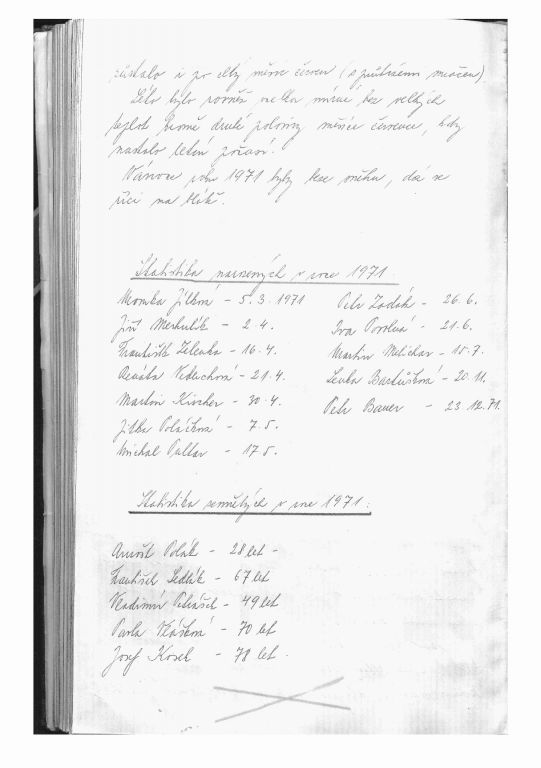 zůstalo i po celý měsíc červen (s průtržemi mračen).
Léto bylo rovněž velko mírné bez velkých
teplot kromě druhé poloviny měsíce července, kdy
nastalo letní počasí.
Vánoce roku 1971 byly beze sněhu, dá se
říci na blátě.
Statistika narozených v roce 1971.
Monika Jílková - 5. 3. 1971
Jiří Merhulík - 2. 4.
František Zelenka - 16. 4.
Renáta Veduchová - 21. 4.
Martin Kircher - 30. 4.
Jitka Poláčková - 7. 5.
Michal Pultar - 17 5.
Petr Zadák - 26. 6.
Iva - 21. 6.
Martin Melichar - 15. 7.
Lenka Bartůšková - 20. 11.
Petr Bauer - 23. 12. 71.
Statistika zemřelých v roce 1971:
Arnošt Polák - 28 let -
František Sedlák - 67 let
Vladimír - 49 let
Pavla Vlášková - 70 let
Josef Kosek - 78 let.